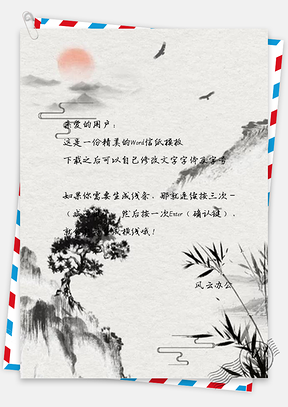 亲爱的用户：
这是一份精美的Word信纸模板
下载之后可以自己修改文字字体及字号
如果你需要生成线条，那就连续按三次－
然后按一次Enter（确认键），
横线哦！
风云办公